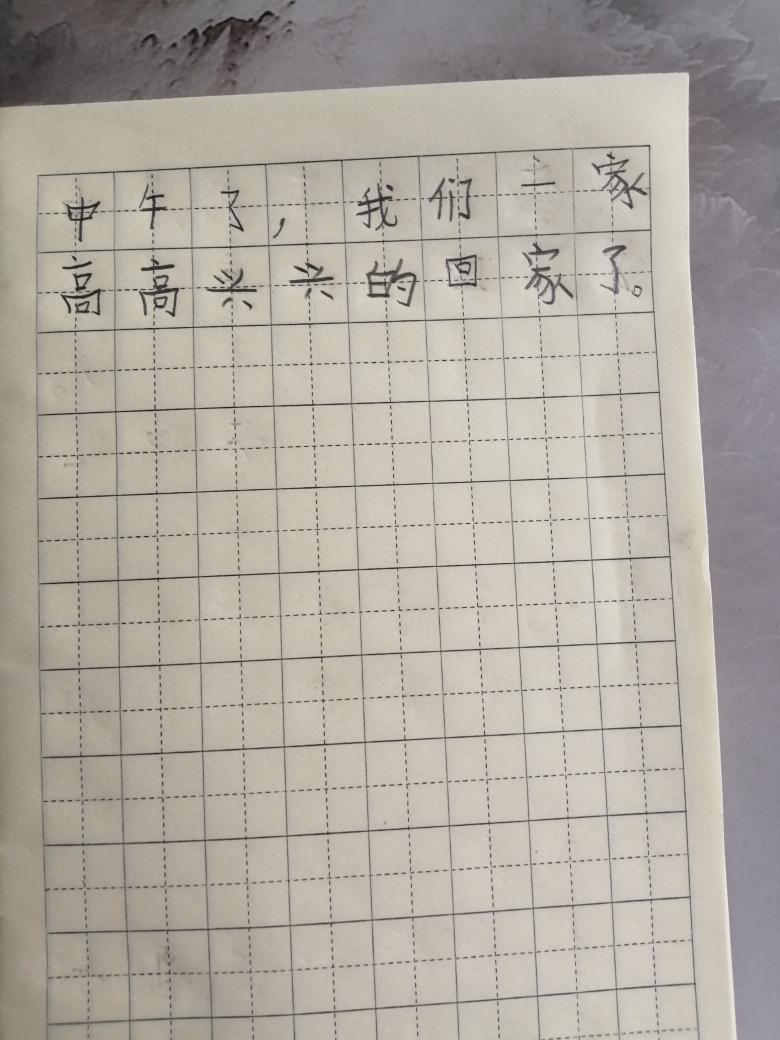 中午了，我们一家
高高兴兴的回家了。